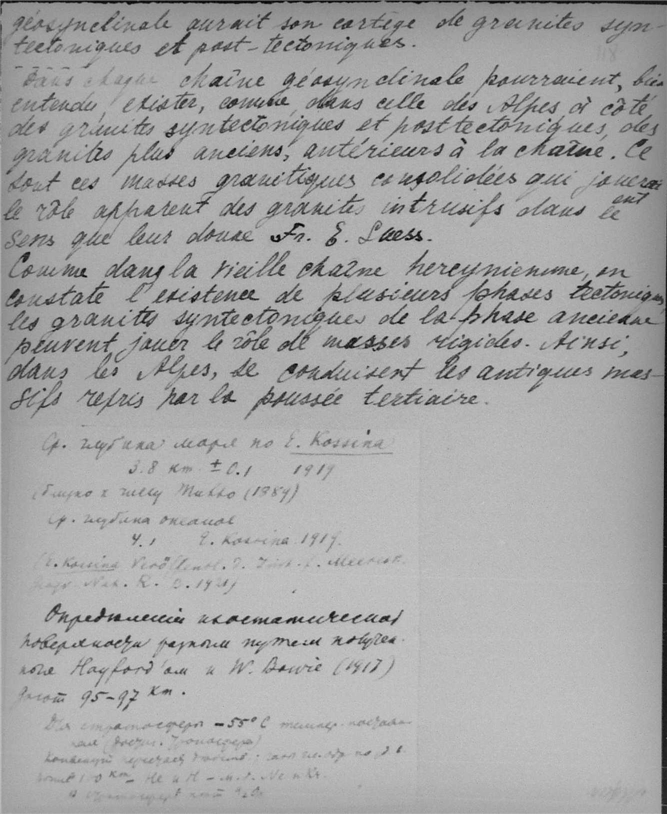 géosynclinale aurait son cortège de granites syn-
tectoniques et post-tectoniques.
118
Dans chaque chaîne géosynclinale pourraient, bien
entendu exister, comme dans celle des Alpes à côté
des granites syntectoniques et posttectoniques, des
granites plus anciens, antérieurs à la chaîne. Ce
sont ces masses granitiques consolidées qui joueraient
le rôle apparent des granites intrusifs dans le
sens que leur donne Fr. E. Suess.
Comme dans la vieille chaîne hercynienne, on
constate l'existence de plusieurs phases tectoniques,
les granites syntectoniques de la phase ancienne
peuvent jouer le rôle de masses rigides. Ainsi,
dans les Alpes, se conduisent les antiques mas-
sifs repris par la poussée tertiaire.
Ср. глубина моря по E. Kossina
3.8 km ± 0.1 1919
(близко к числу
Ср. глубина океанов
4.1 E. Kossina 1919.
(E. Kossina Veröffentl. d. Inst. f. Meeresk.
Определение изостатической
поверхности разным путем
Hayford'ом и W. Bowie (1917)
дают 95-97 km.
Для стратосферы -55° C темпер.
100 km - He и H -